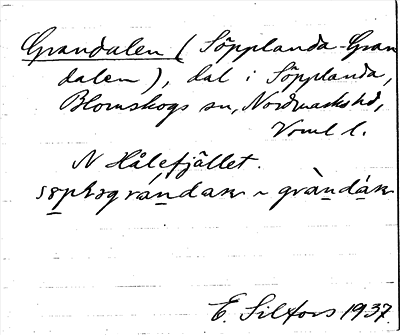 Grandalen (Söpplanda-Gran
dalen), dal i Söpplanda,
Blomskogs sn, Nordmarks hd,
Vrml l.
N Hålefjället.
~
E. Silfors 1937.